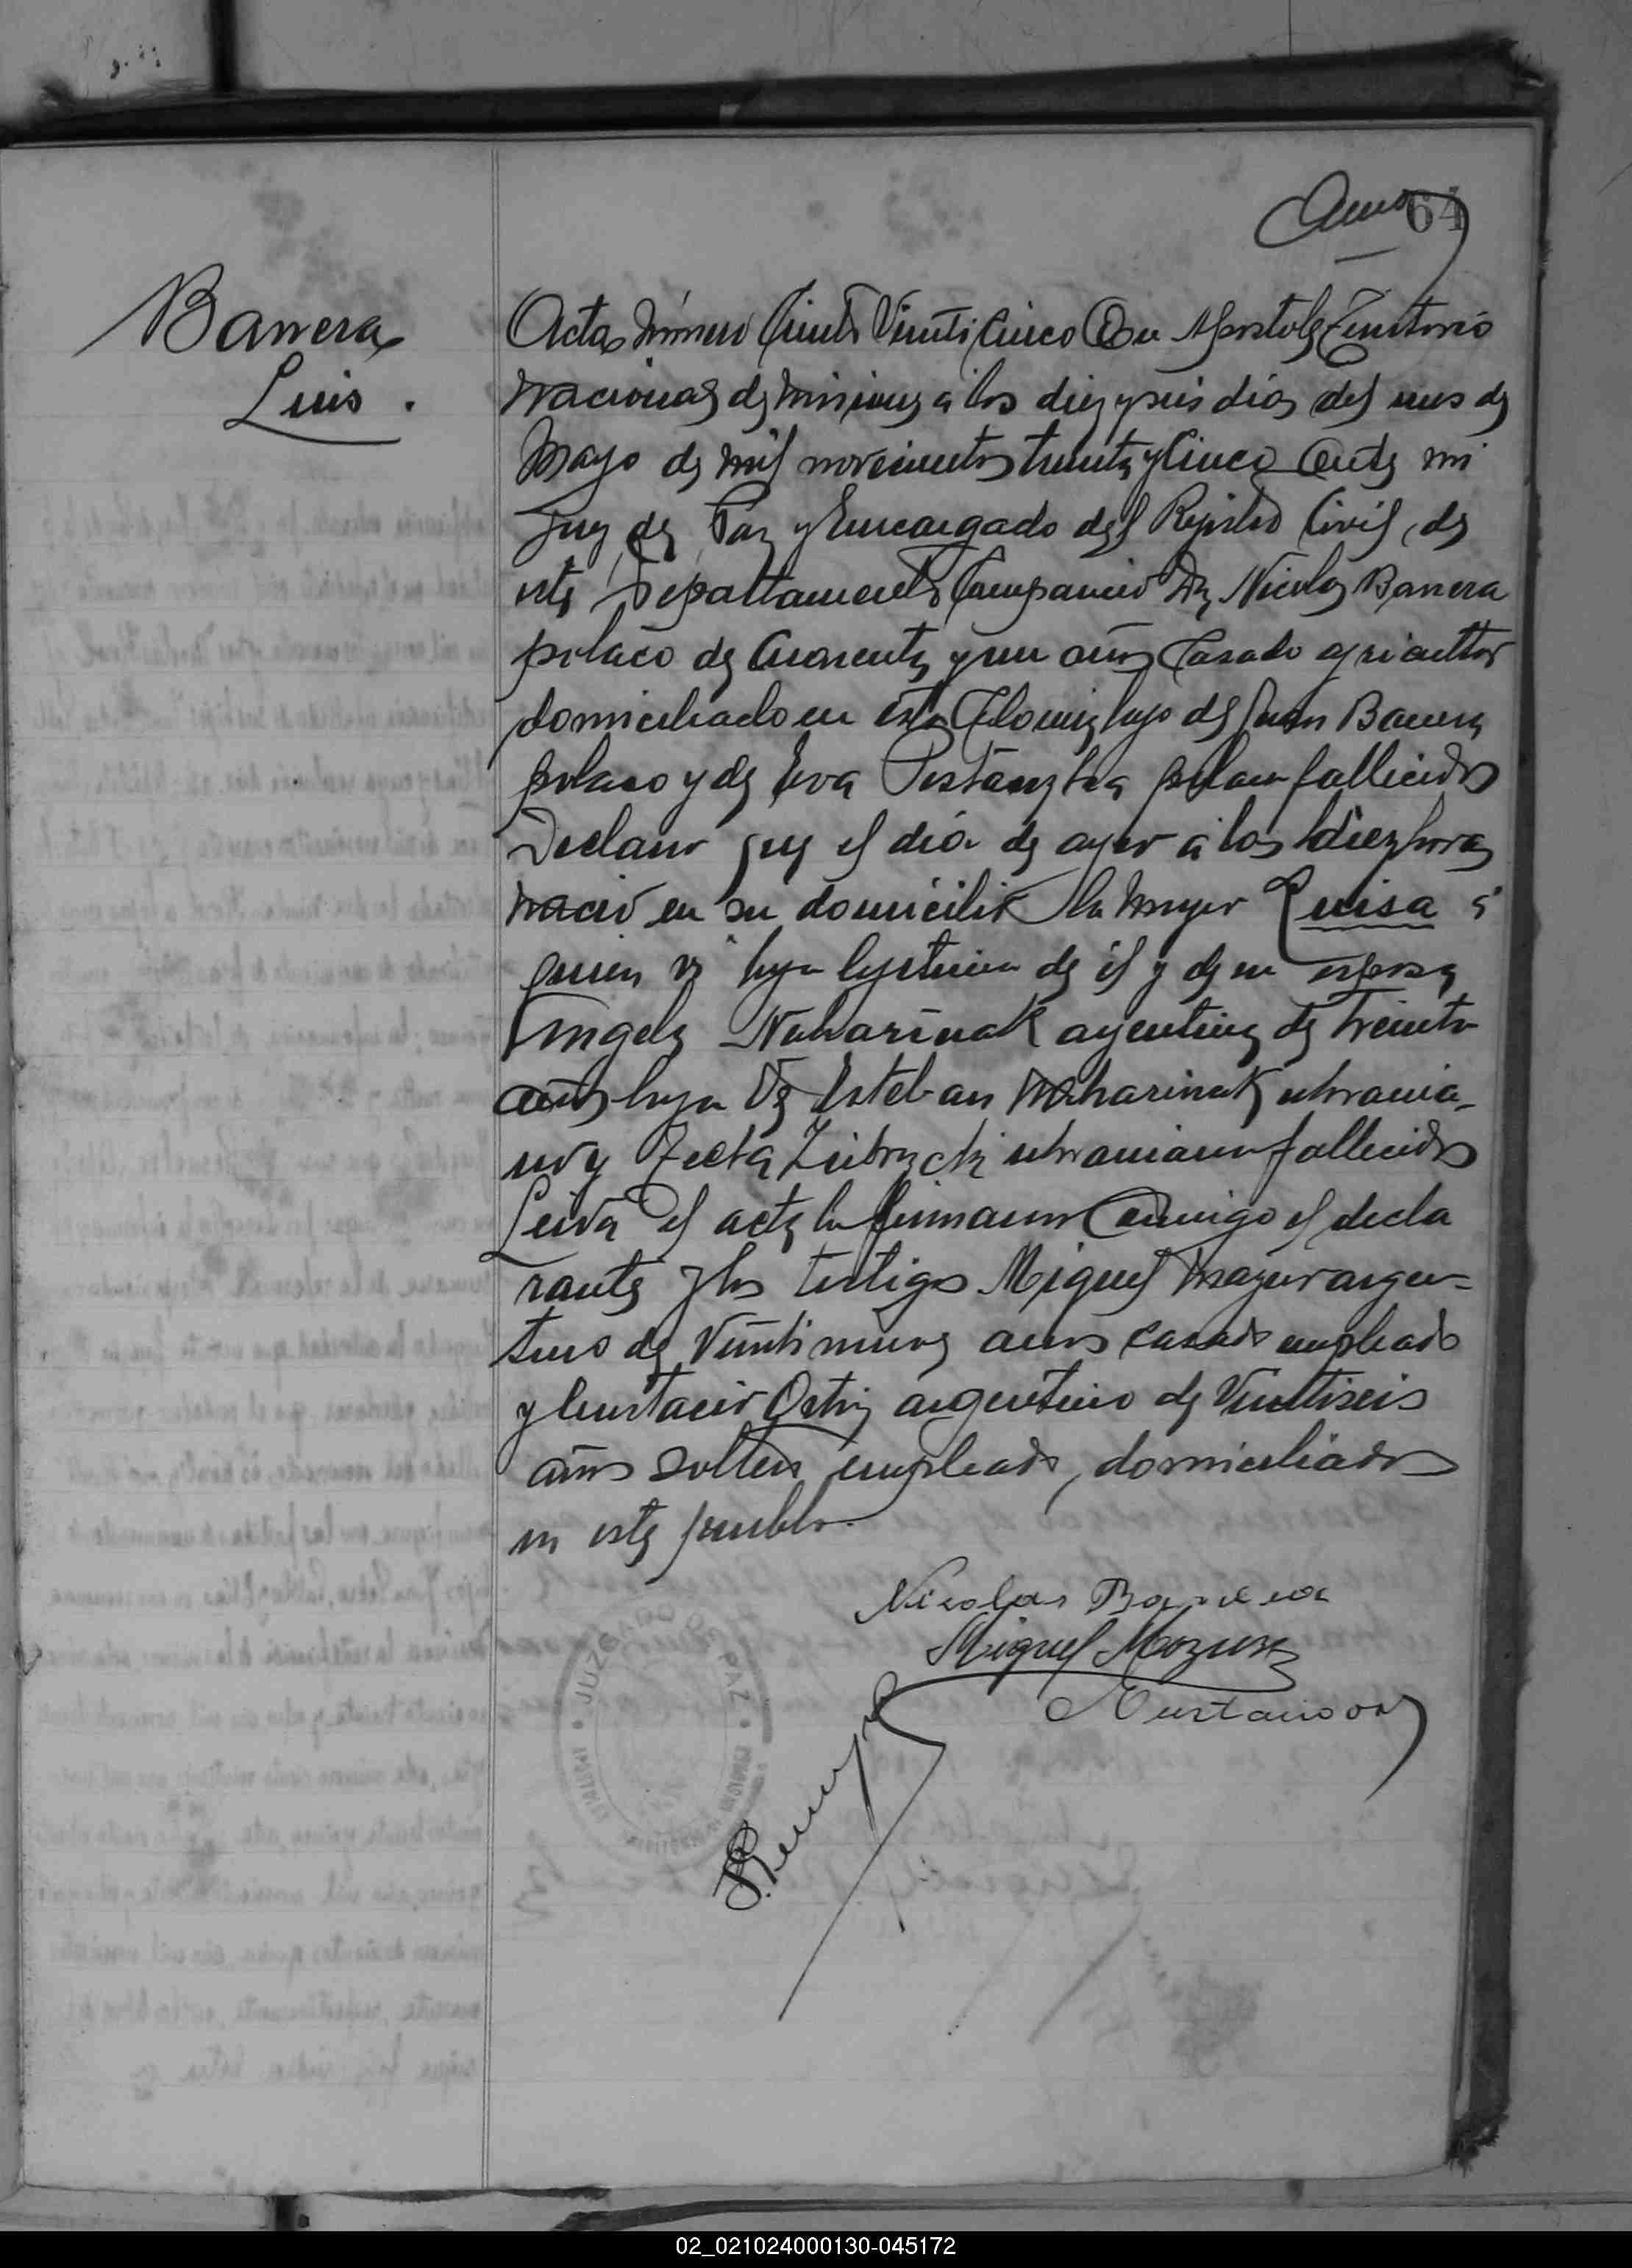 64
Barrera
Luis .
Acta Número Ciento Veinticinco En Apostoles Territorio
Nacional de Misiones a los diez y seis dias del mes de
Mayo de mil novecientos treinta y Cinco Ante mi
Juez de Paz y Encargado del Registro Civil, de
este Departamento Comparecio Dn Nicolas Barrera
polaco de Cuarenta y un años Casado agricultor
domiciliado en esta Colonia hijo de Juan Barrera
polaco y de Eva fallecidos
Declaro que el día de ayer a las diez horas
nació en su domicilio la mujer Luisa a
quien vi hija legitima de él y de su esposa
Angela Naharinak argentina de treinta
años hija de Esteban Naharinak ukrania-
no y ukraniana fallecidos
Leida el acta la firmaron Conmigo el decla
rante y los testigos Miguel Mazur argen-
tino de Veintinueve años casado empleado
y Eustacio Ortiz argentino de Veintiseis
años soltero empleado, domiciliados
en este pueblo.
Nicolas Barrera
Miguel Mazur
Eustacio
JUZGADO DE PAZ
02_021024000130-045172